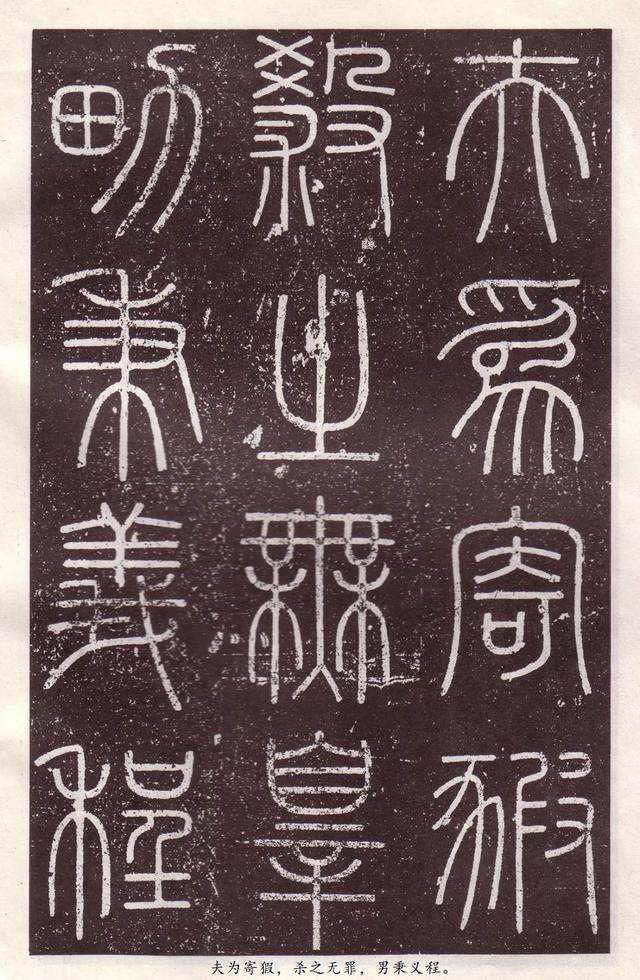 夫為寄豭
殺之無辠
男秉義程
夫为寄豭，杀之无罪，男秉义程。